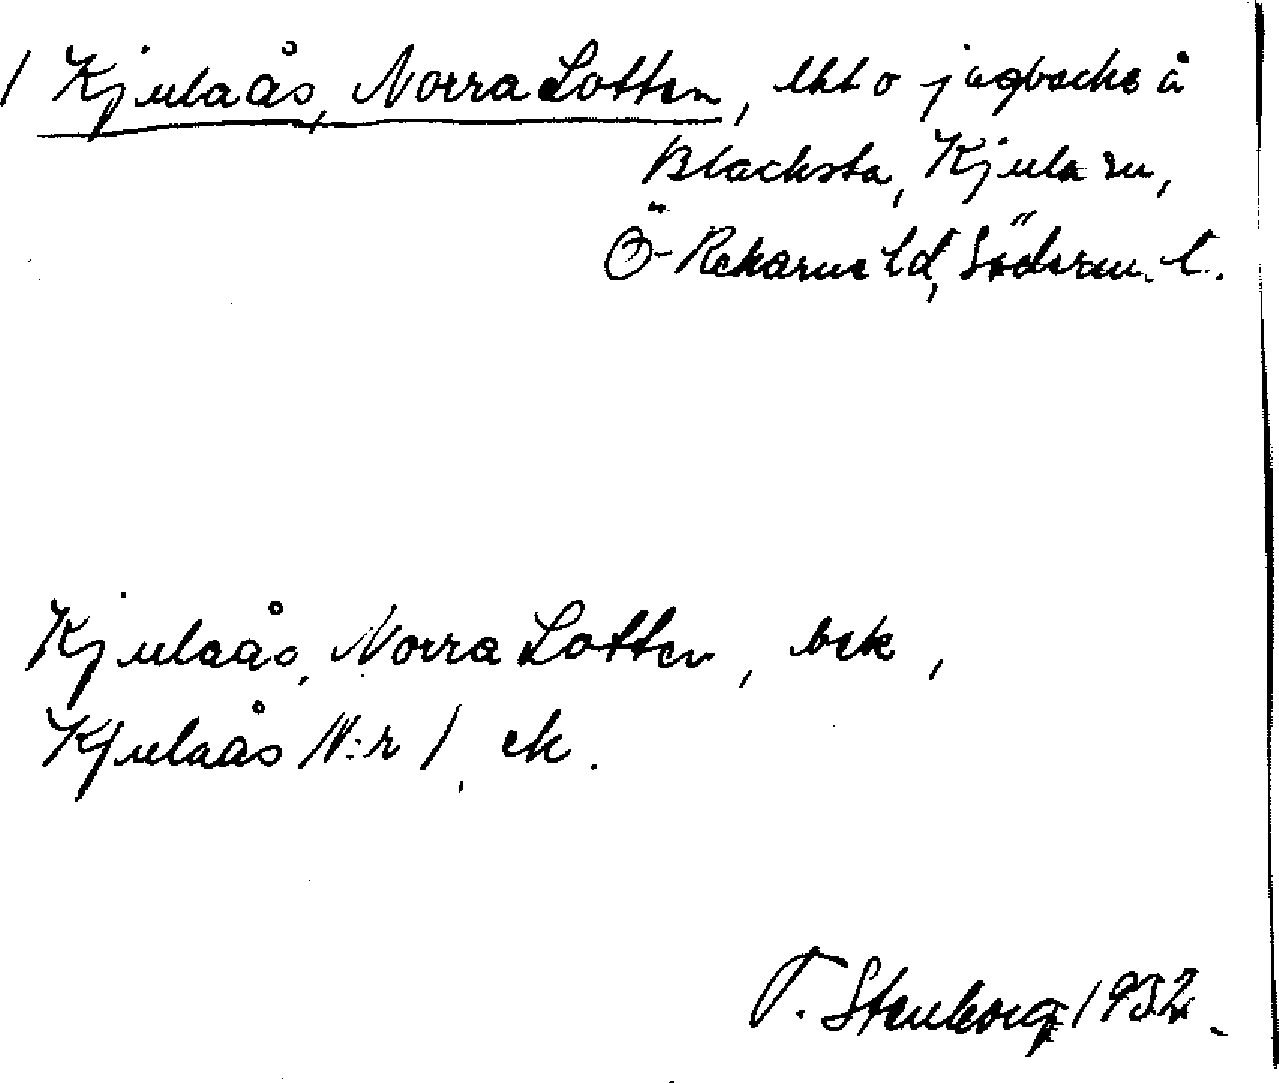 1 Kjulaås, Norra Lotten, lht o jägbacke å
Blacksta, Kjula sn,
Ö-Rekarne hd, Söderm. l.
Kjulaås, Norra Lotten, bek,
Kjulaås N:r 1, ek.
T. Stenborg 1932.